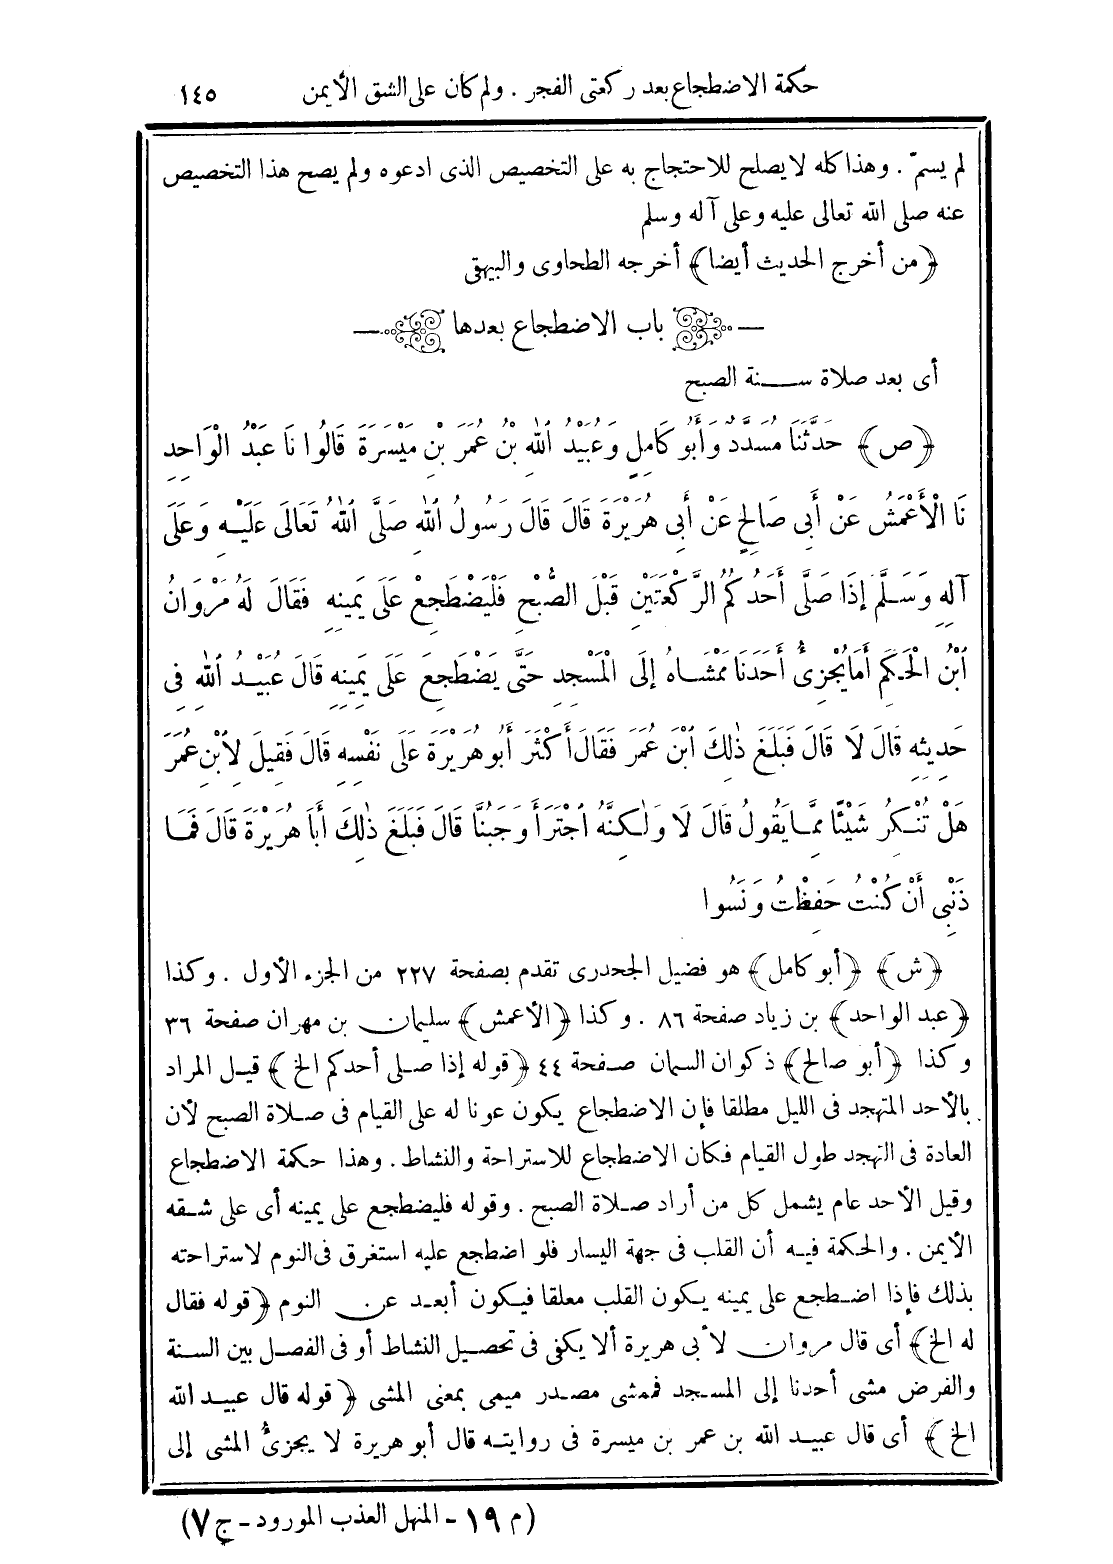 حكمة الاضطجاع بعد ركعتى الفجر . ولم كان على الشق الأيمن ١٤٥
لم يسمّ . وهذا كله لا يصلح للاحتجاج به على التخصيص الذى ادعوه ولم يصح هذا التخصيص
عنه صلى الله تعالى عليه وعلى آله وسلم
﴿من أخرج الحديث أيضا﴾ أخرجه الطحاوى والبيهقى
— باب الاضطجاع بعدها —
أى بعد صلاة سنة الصبح
﴿ص﴾ حَدَّثَنَا مُسَدَّدٌ وَأَبُو كَامِلٍ وَعُبَيْدُ ٱللهِ بْنُ عُمَرَ بْنِ مَيْسَرَةَ قَالُوا نَا عَبْدُ الْوَاحِدِ
نَا الْأَعْمَشُ عَنْ أَبِى صَالِحٍ عَنْ أَبِى هُرَيْرَةَ قَالَ قَالَ رَسُولُ ٱللهِ صَلَّى ٱللهُ تَعَالَى عَلَيْهِ وَعَلَى
آلِهِ وَسَلَّمَ إِذَا صَلَّى أَحَدُكُمُ الرَّكْعَتَيْنِ قَبْلَ الصُّبْحِ فَلْيَضْطَجِعْ عَلَى يَمِينِهِ فَقَالَ لَهُ مَرْوَانُ
ٱبْنُ الْحَكَمِ أَمَا يُجْزِىُٔ أَحَدَنَا مَمْشَاهُ إِلَى الْمَسْجِدِ حَتَّى يَضْطَجِعَ عَلَى يَمِينِهِ قَالَ عُبَيْدُ ٱللهِ فِى
حَدِيثِهِ قَالَ لَا قَالَ فَبَلَغَ ذٰلِكَ ٱبْنَ عُمَرَ فَقَالَ أَكْثَرَ أَبُو هُرَيْرَةَ عَلَى نَفْسِهِ قَالَ فَقِيلَ لِٱبْنِ عُمَرَ
هَلْ تُنْكِرُ شَيْئًا مِمَّا يَقُولُ قَالَ لَا وَلٰكِنَّهُ ٱجْتَرَأَ وَجَبُنَّا قَالَ فَبَلَغَ ذٰلِكَ أَبَا هُرَيْرَةَ قَالَ فَمَا
ذَنْبِى أَنْ كُنْتُ حَفِظْتُ وَنَسُوا
﴿ش﴾ ﴿أبو كامل﴾ هو فضيل الجحدرى تقدم بصفحة ٢٢٧ من الجزء الأول . وكذا
﴿عبد الواحد﴾ بن زياد صفحة ٨٦ . وكذا ﴿الأعمش﴾ سليمان بن مهران صفحة ٣٦
وكذا ﴿أبو صالح﴾ ذكوان السمان صفحة ٤٤ ﴿قوله إذا صلى أحدكم الخ﴾ قيل المراد
بالأحد المتهجد فى الليل مطلقا فإن الاضطجاع يكون عونا له على القيام فى صلاة الصبح لأن
العادة فى التهجد طول القيام فكان الاضطجاع للاستراحة والنشاط . وهذا حكمة الاضطجاع
وقيل الأحد عام يشمل كل من أراد صلاة الصبح . وقوله فليضطجع على يمينه أى على شقه
الأيمن . والحكمة فيه أن القلب فى جهة اليسار فلو اضطجع عليه استغرق فى النوم لاستراحته
بذلك فإذا اضطجع على يمينه يكون القلب معلقا فيكون أبعد عن النوم ﴿قوله فقال
له الخ﴾ أى قال مروان لأبى هريرة ألا يكفى فى تحصيل النشاط أو فى الفصل بين السنة
والفرض مشى أحدنا إلى المسجد فممشى مصدر ميمى بمعنى المشى ﴿قوله قال عبيد الله
الخ﴾ أى قال عبيد الله بن عمر بن ميسرة فى روايته قال أبو هريرة لا يجزىُٔ المشى إلى
(م ١٩ - المنهل العذب المورود - ج ٧)